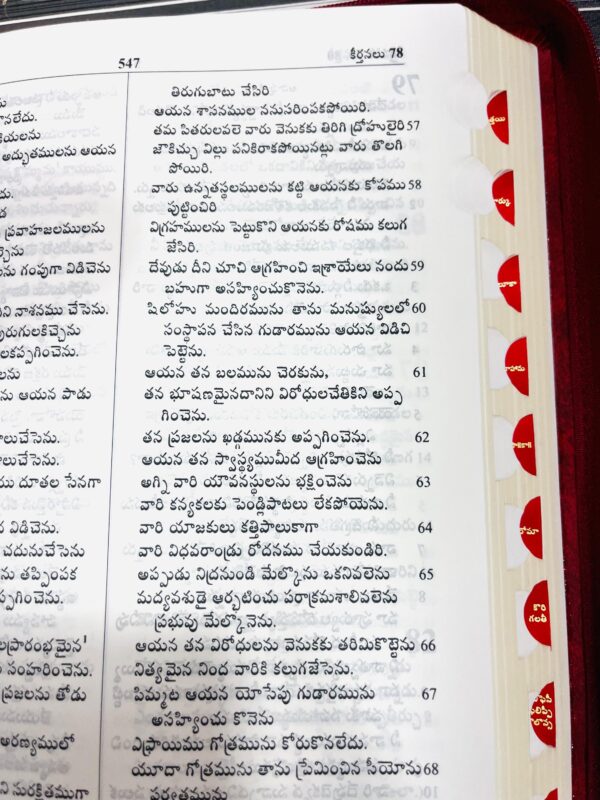 547
కీర్తనలు 78
కానలేదు.
అద్భుతములను ఆయన
ప్రవాహజలములను
గుంపుగా విడిచెను
నాశనము చేసెను.
ను ఆయన పాడు
దూతల సేనగా
విడిచెను.
చదునుచేసెను
తప్పింపక
సంహరించెను.
ప్రజలను తోడు
అరణ్యములో
సురక్షితముగా
తిరుగుబాటు చేసిరి
ఆయన శాసనముల ననుసరింపకపోయిరి.
తమ పితరులవలె వారు వెనుకకు తిరిగి ద్రోహులైరి 57
జౌకిచ్చు విల్లు పనికిరాకపోయినట్లు వారు తొలగి
పోయిరి.
వారు ఉన్నతస్థలములను కట్టి ఆయనకు కోపము 58
పుట్టించిరి
విగ్రహములను పెట్టుకొని ఆయనకు రోషము కలుగ
జేసిరి.
దేవుడు దీని చూచి ఆగ్రహించి ఇశ్రాయేలు నందు 59
బహుగా అసహ్యించుకొనెను.
షిలోహు మందిరమును తాను మనుష్యులలో 60
సంస్థాపన చేసిన గుడారమును ఆయన విడిచి
పెట్టెను.
ఆయన తన బలమును చెరకును, 61
తన భూషణమైనదానిని విరోధులచేతికిని అప్ప
గించెను.
తన ప్రజలను ఖడ్గమునకు అప్పగించెను. 62
ఆయన తన స్వాస్థ్యముమీద ఆగ్రహించెను
అగ్ని వారి యౌవనస్థులను భక్షించెను 63
వారి కన్యకలకు పెండ్లిపాటలు లేకపోయెను.
వారి యాజకులు కత్తిపాలుకాగా 64
వారి విధవరాండ్రు రోదనము చేయకుండిరి.
అప్పుడు నిద్రనుండి మేల్కొను ఒకనివలెను 65
మద్యవశుడై ఆర్భటించు పరాక్రమశాలివలెను
ప్రభువు మేల్కొనెను.
ఆయన తన విరోధులను వెనుకకు తరిమికొట్టెను 66
నిత్యమైన నింద వారికి కలుగజేసెను.
పిమ్మట ఆయన యోసేపు గుడారమును 67
అసహ్యించు కొనెను
ఎఫ్రాయిము గోత్రమును కోరుకొనలేదు.
యూదా గోత్రమును తాను ప్రేమించిన సీయోను 68
పర్వతమును
త్తయి
ర్కు
లూకా
హాను
రోమా
కొరి
గలతీ